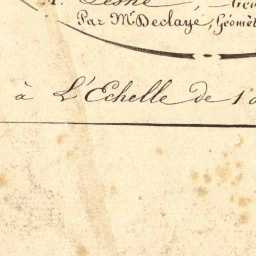 Par Mr. Declaye, Géomèt
à L'Echelle de 1 à